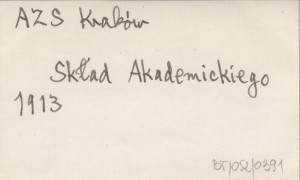 AZS Kraków
Skład Akademickiego
1913
BT/OSZ/0391